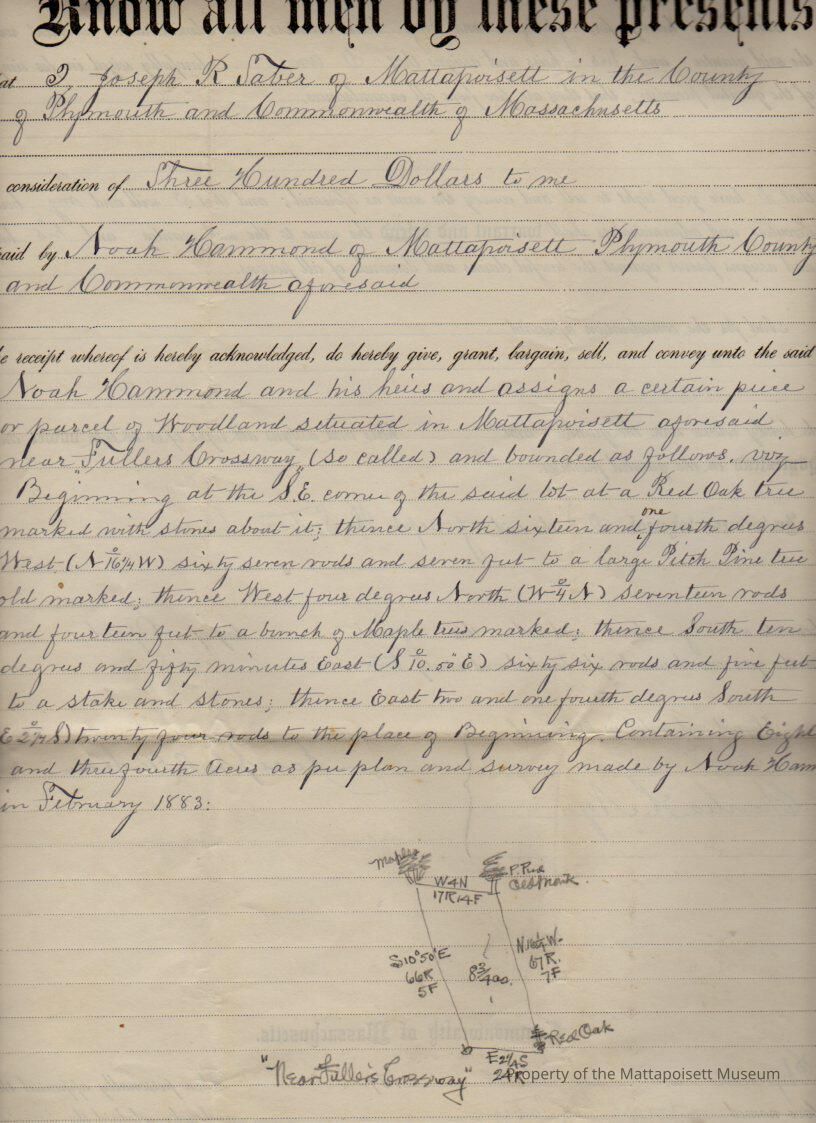 Know all men by these presents
at I, Joseph R Taber of Mattapoisett in the County
of Plymouth and Commonwealth of Massachusetts
consideration of Three Hundred Dollars to me
aid by Noah Hammond of Mattapoisett Plymouth County
and Commonwealth aforesaid
e receipt whereof is hereby acknowledged, do hereby give, grant, bargain, sell, and convey unto the said
Noah Hammond and his heirs and assigns a certain piece
or parcel of Woodland setuated in Mattapoisett aforesaid
near "Fullers Crossway" (so called) and bounded as follows. viz
Beginning at the S.E. corner of the said lot at a Red Oak tree
marked with stones about it; thence North sixteen and one fourth degrees
West (N 16¼° W) sixty seven rods and seven feet to a large Pitch Pine tree
old marked; thence West four degrees North (W 4° N) seventeen rods
and fourteen feet to a bunch of Maple trees marked; thence South ten
degrees and fifty minutes East (S 10°.50' E) sixty six rods and five feet
to a stake and stones; thence East two and one fourth degrees South
(E 2¼° S) twenty four rods to the place of Beginning. Containing Eight
and three fourth Acres as per plan and survey made by Noah Ham
in February 1883:
Maples
W4N
17R14F
P. Pine
Old Mark
S10°50'E
66R
5F
8¾as.
N16¼W.
67R.
7F
Red Oak
E2¼S
24R
"Near Fuller's Crossway"
Property of the Mattapoisett Museum